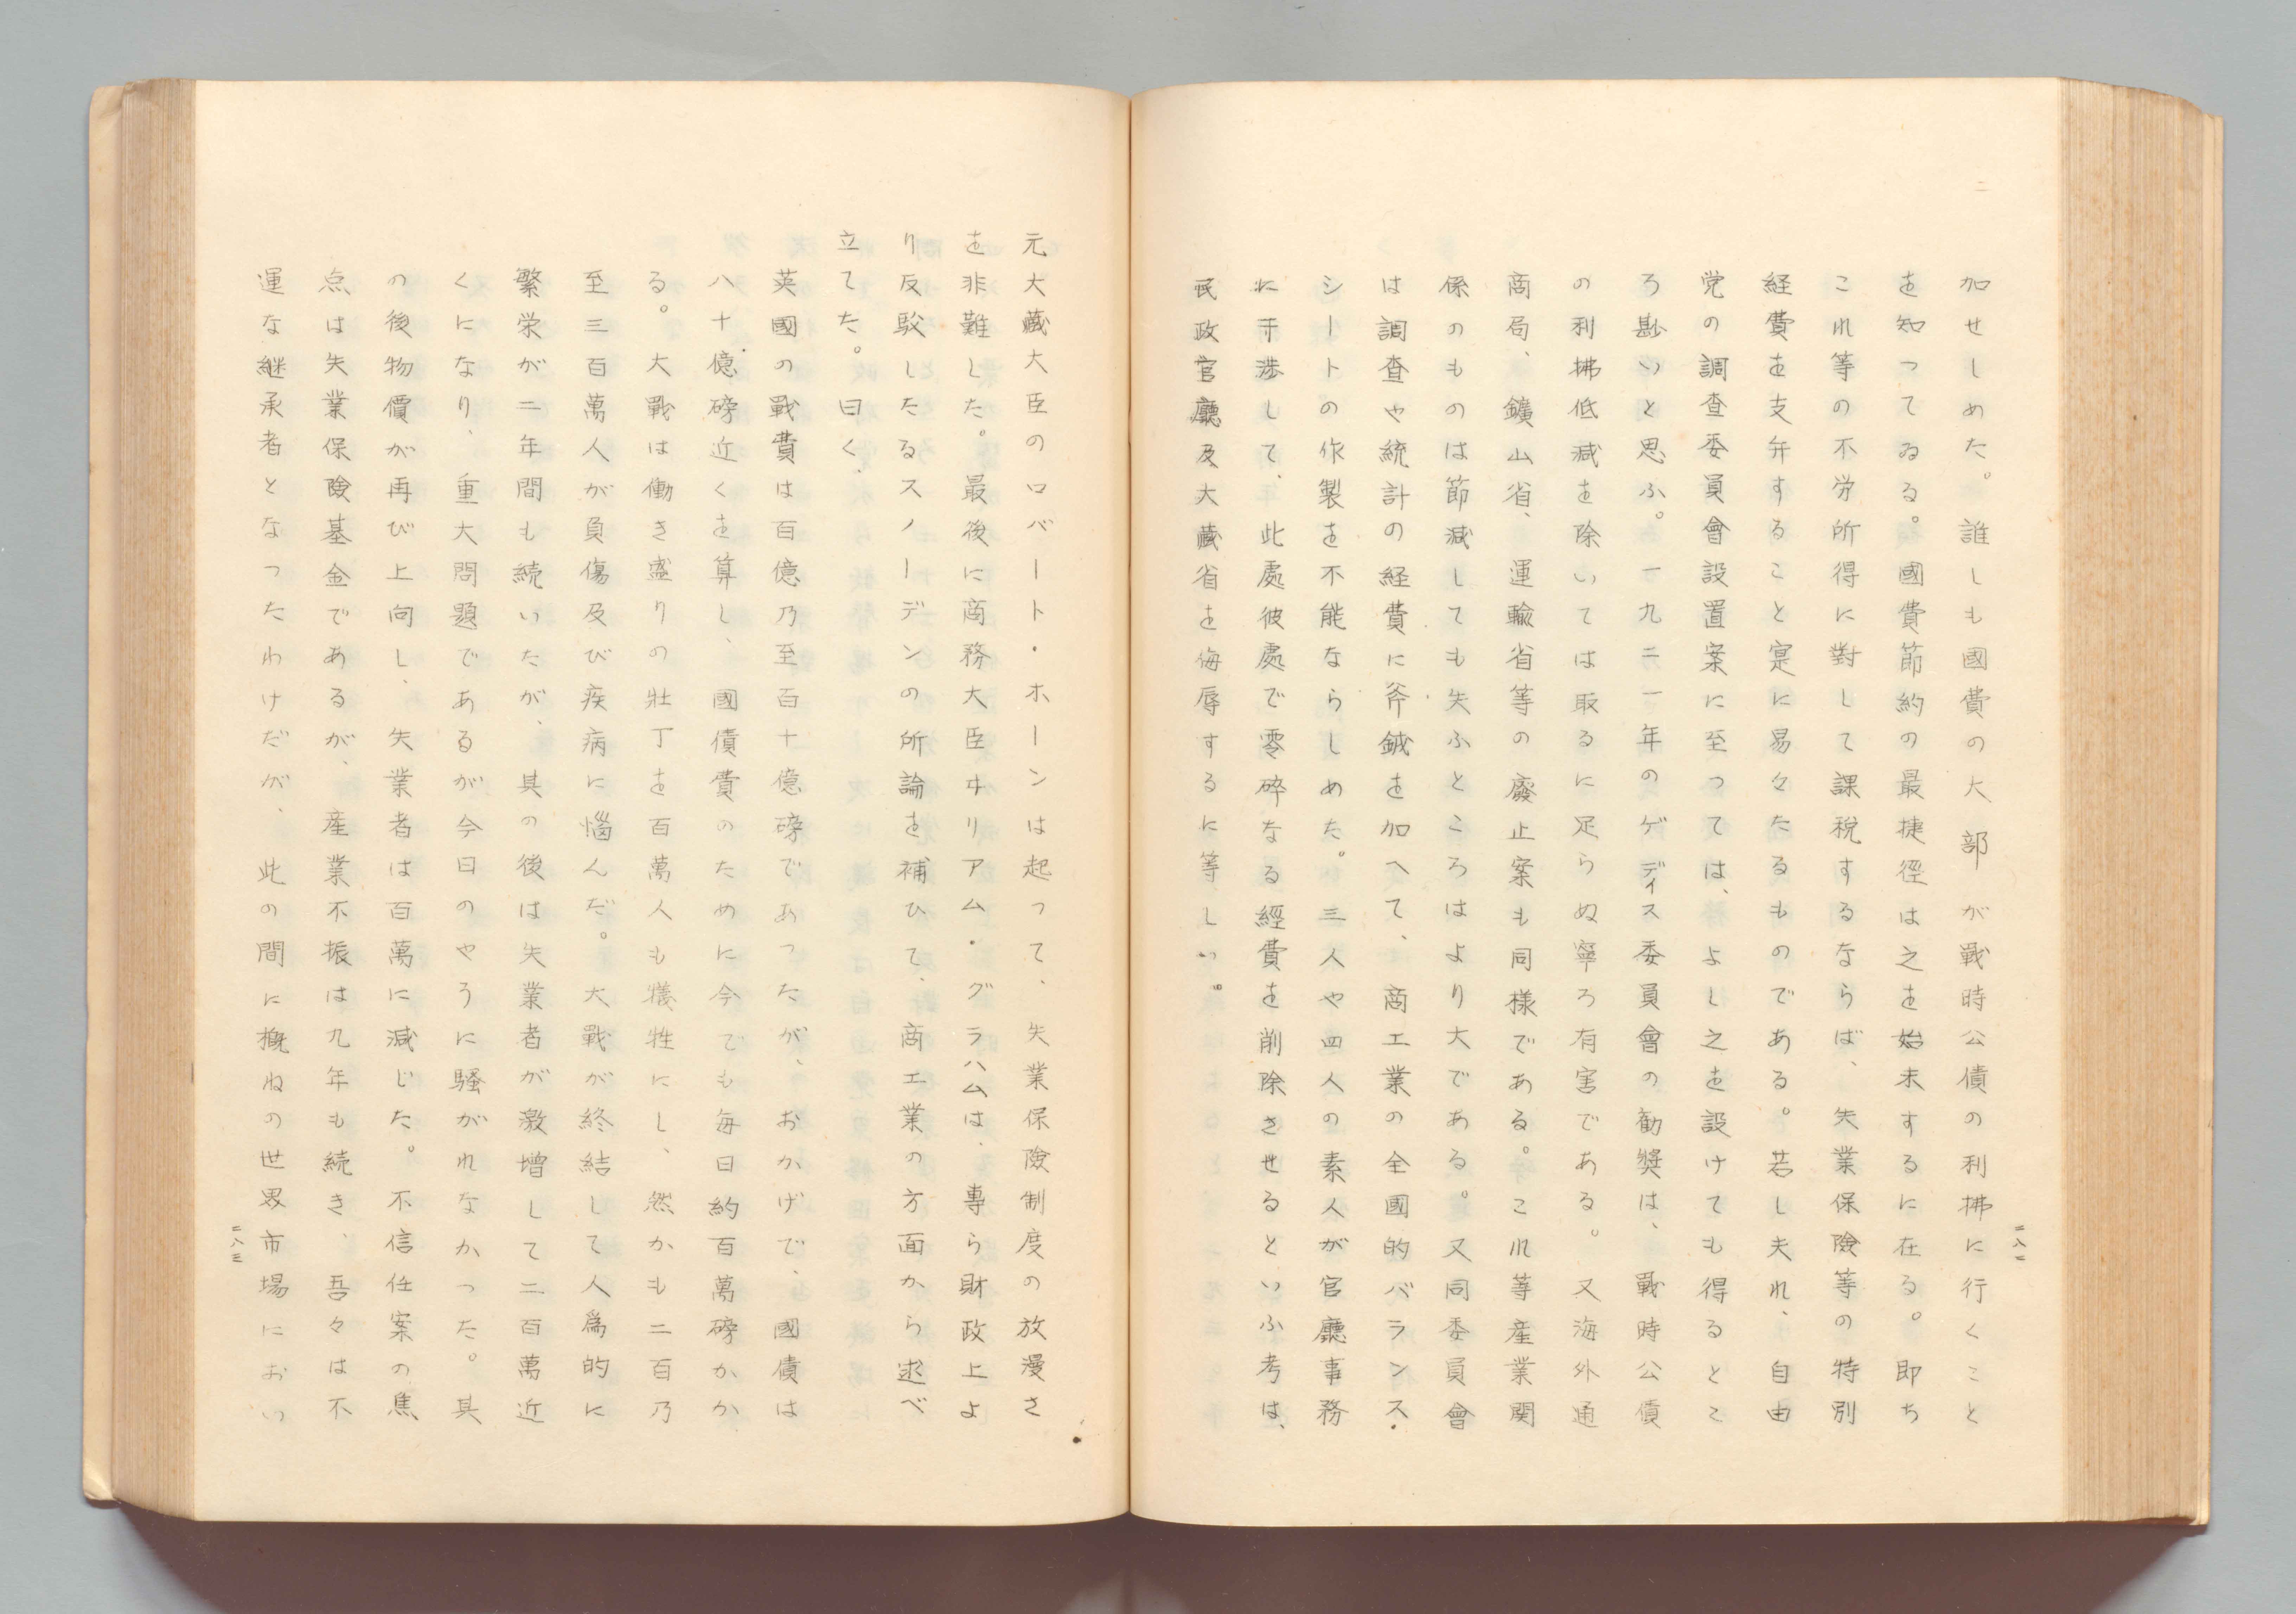 加せしめた。誰しも國費の大部が戰時公債の利拂に行くこと
を知つてゐる。國費節約の最捷徑は之を始末するに在る。即ち
これ等の不労所得に對して課税するならば、失業保險等の特別
経費を支弁すること寔に易々たるものである。若し夫れ、自由
党の調査委員會設置案に至つては、よし之を設けても得るとこ
ろ尠いと思ふ。一九二一年のゲディス委員會の勧奬は、戰時公債
の利拂低減を除いては取るに足らぬ寧ろ有害である。又海外通
商局、鑛山省、運輸省等の廢止案も同様である。これ等産業関
係のものは節減しても失ふところはより大である。又同委員會
は調査や統計の経費に斧鉞を加へて、商工業の全國的バランス・
シートの作製を不能ならしめた。三人や四人の素人が官廳事務
に干渉して、此處彼處で零碎なる經費を削除させるといふ考は、
民政官廳及大藏省を侮辱するに等しい。
二八二
元大藏大臣のロバート・ホーンは起つて、失業保險制度の放漫さ
を非難した。最後に商務大臣ヰリアム・グラハムは、專ら財政上よ
り反駁したるスノーデンの所論を補ひて、商工業の方面から逑べ
立てた。曰く、
英國の戰費は百億乃至百十億磅であつたが、おかげで、國債は
八十億磅近くを算し、國債費のために今でも毎日約百萬磅かか
る。大戰は働き盛りの壯丁を百萬人も犠牲にし、然かも二百乃
至三百萬人が負傷及び疾病に惱んだ。大戰が終結して人爲的に
繁栄が二年間も続いたが、其の後は失業者が激增して二百萬近
くになり、重大問題であるが今日のやうに騒がれなかつた。其
の後物價が再び上向し、失業者は百萬に減じた。不信任案の焦
点は失業保險基金であるが、産業不振は九年も続き、吾々は不
運な継承者となつたわけだが、此の間に槪ねの世界市場におい
二八三